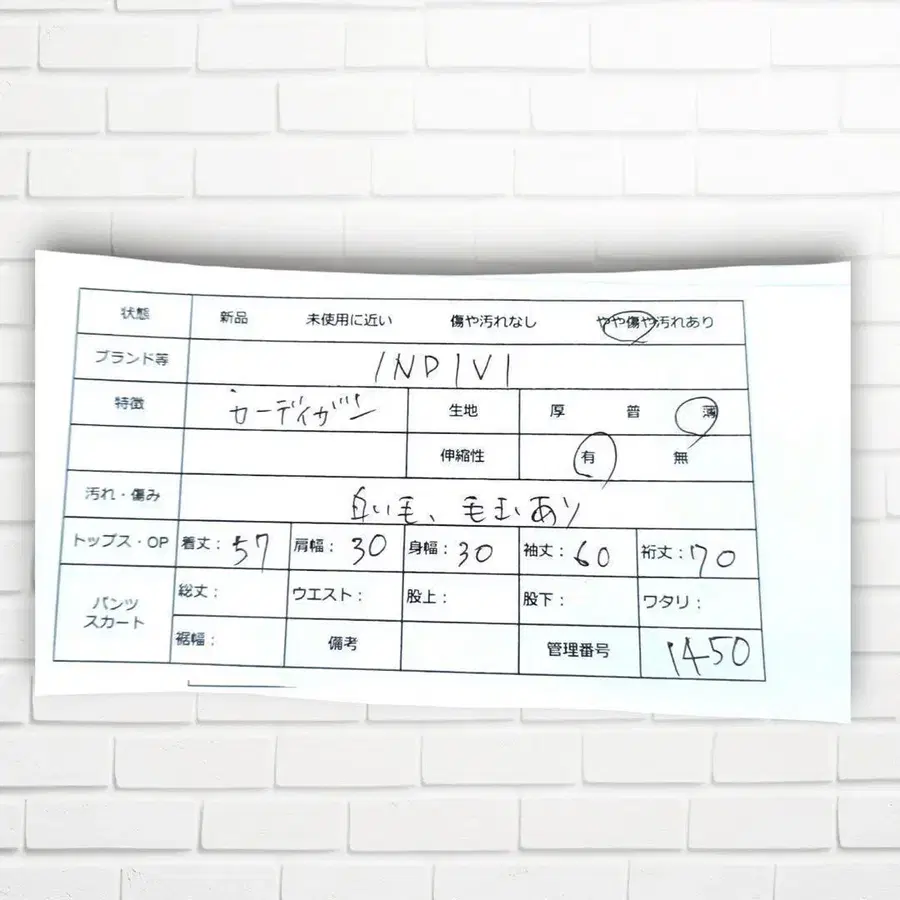 状態 新品 未使用に近い 傷や汚れなし やや傷や汚れあり
ブランド等 INDIVI
特徴 カーディガン 生地 厚 普 薄
伸縮性 有 無
汚れ・傷み 白い毛、毛玉あり
トップス・OP 着丈: 57 肩幅: 30 身幅: 30 袖丈: 60 裄丈: 70
パンツ スカート 総丈: ウエスト: 股上: 股下: ワタリ:
裾幅: 備考 管理番号 1450